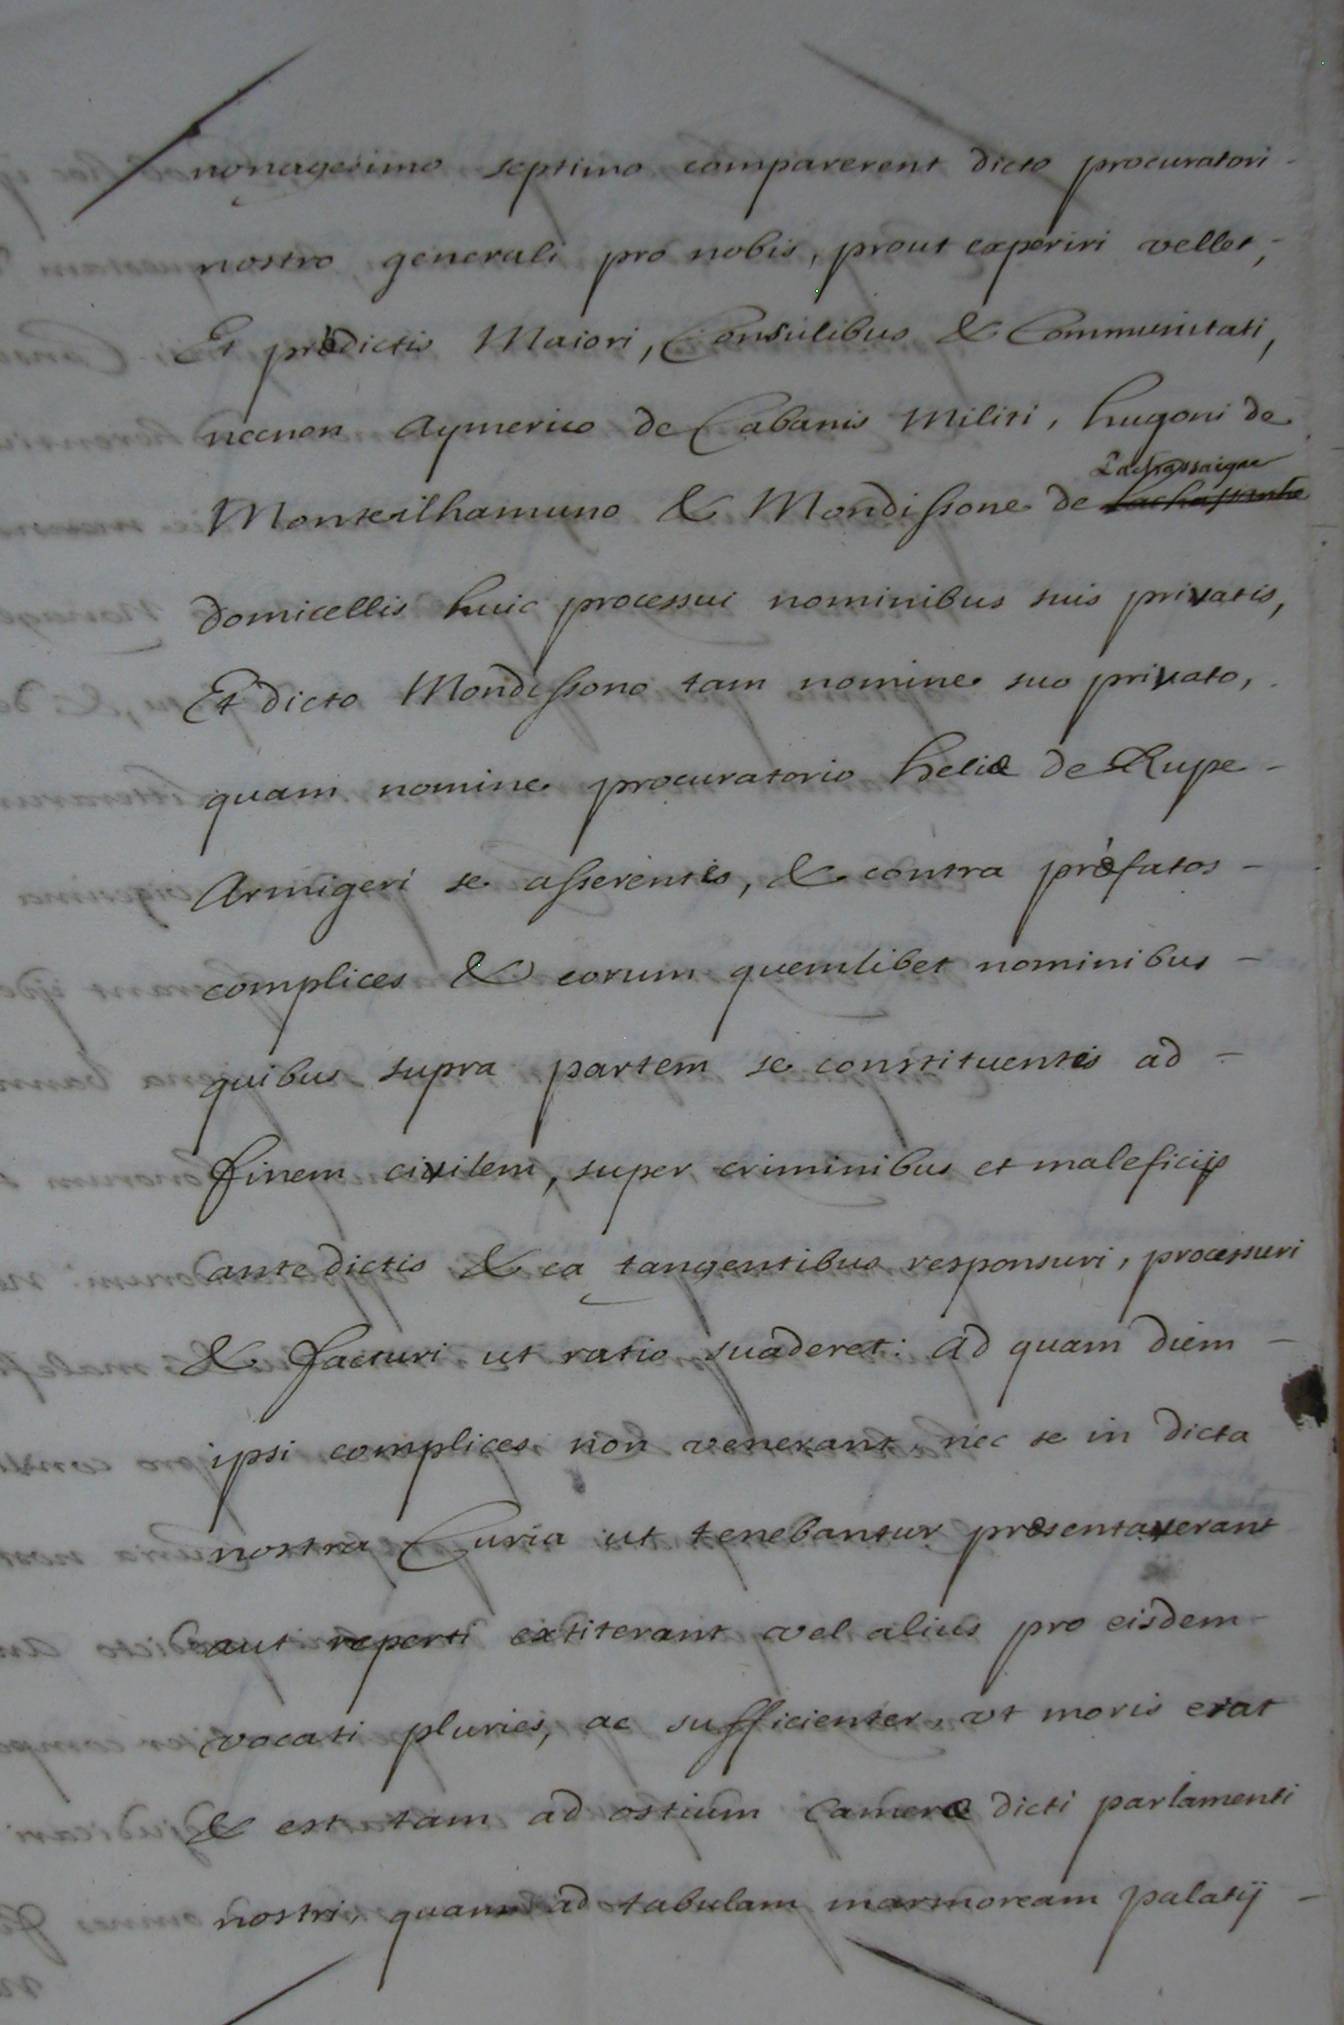 nonagesimo septimo comparerent dicto procuratori -
nostro generali pro nobis, prout experiri vellet,
Et prædictis Maiori, Consulibus & Communitati,
necnon Aymerico de Cabanis Militi, hugoni de
Lachassaigne
Monteilhamuno & Mondissone de
domicellis huic processui nominibus suis privatis,
Et dicto Mondissono tam nomine suo privato,
quam nomine procuratorio heliæ de Rupe -
Armigeri se asserentis, & contra præfatos -
complices & eorum quemlibet nominibus -
quibus supra partem se constituentis ad -
finem civilem, super criminibus et maleficijs
antedictis & ea tangentibus responsuri, processuri
& facturi ut ratio suaderet: ad quam diem -
ipsi complices non venerant, nec se in dicta
nostra Curia ut tenebantur præsentaverant
aut reperti extiterant vel alius pro eisdem
vocati pluries, ac sufficienter, ut moris erat
& est tam ad ostium Cameræ dicti parlamenti
nostri, quam ad tabulam marmoream palatij -